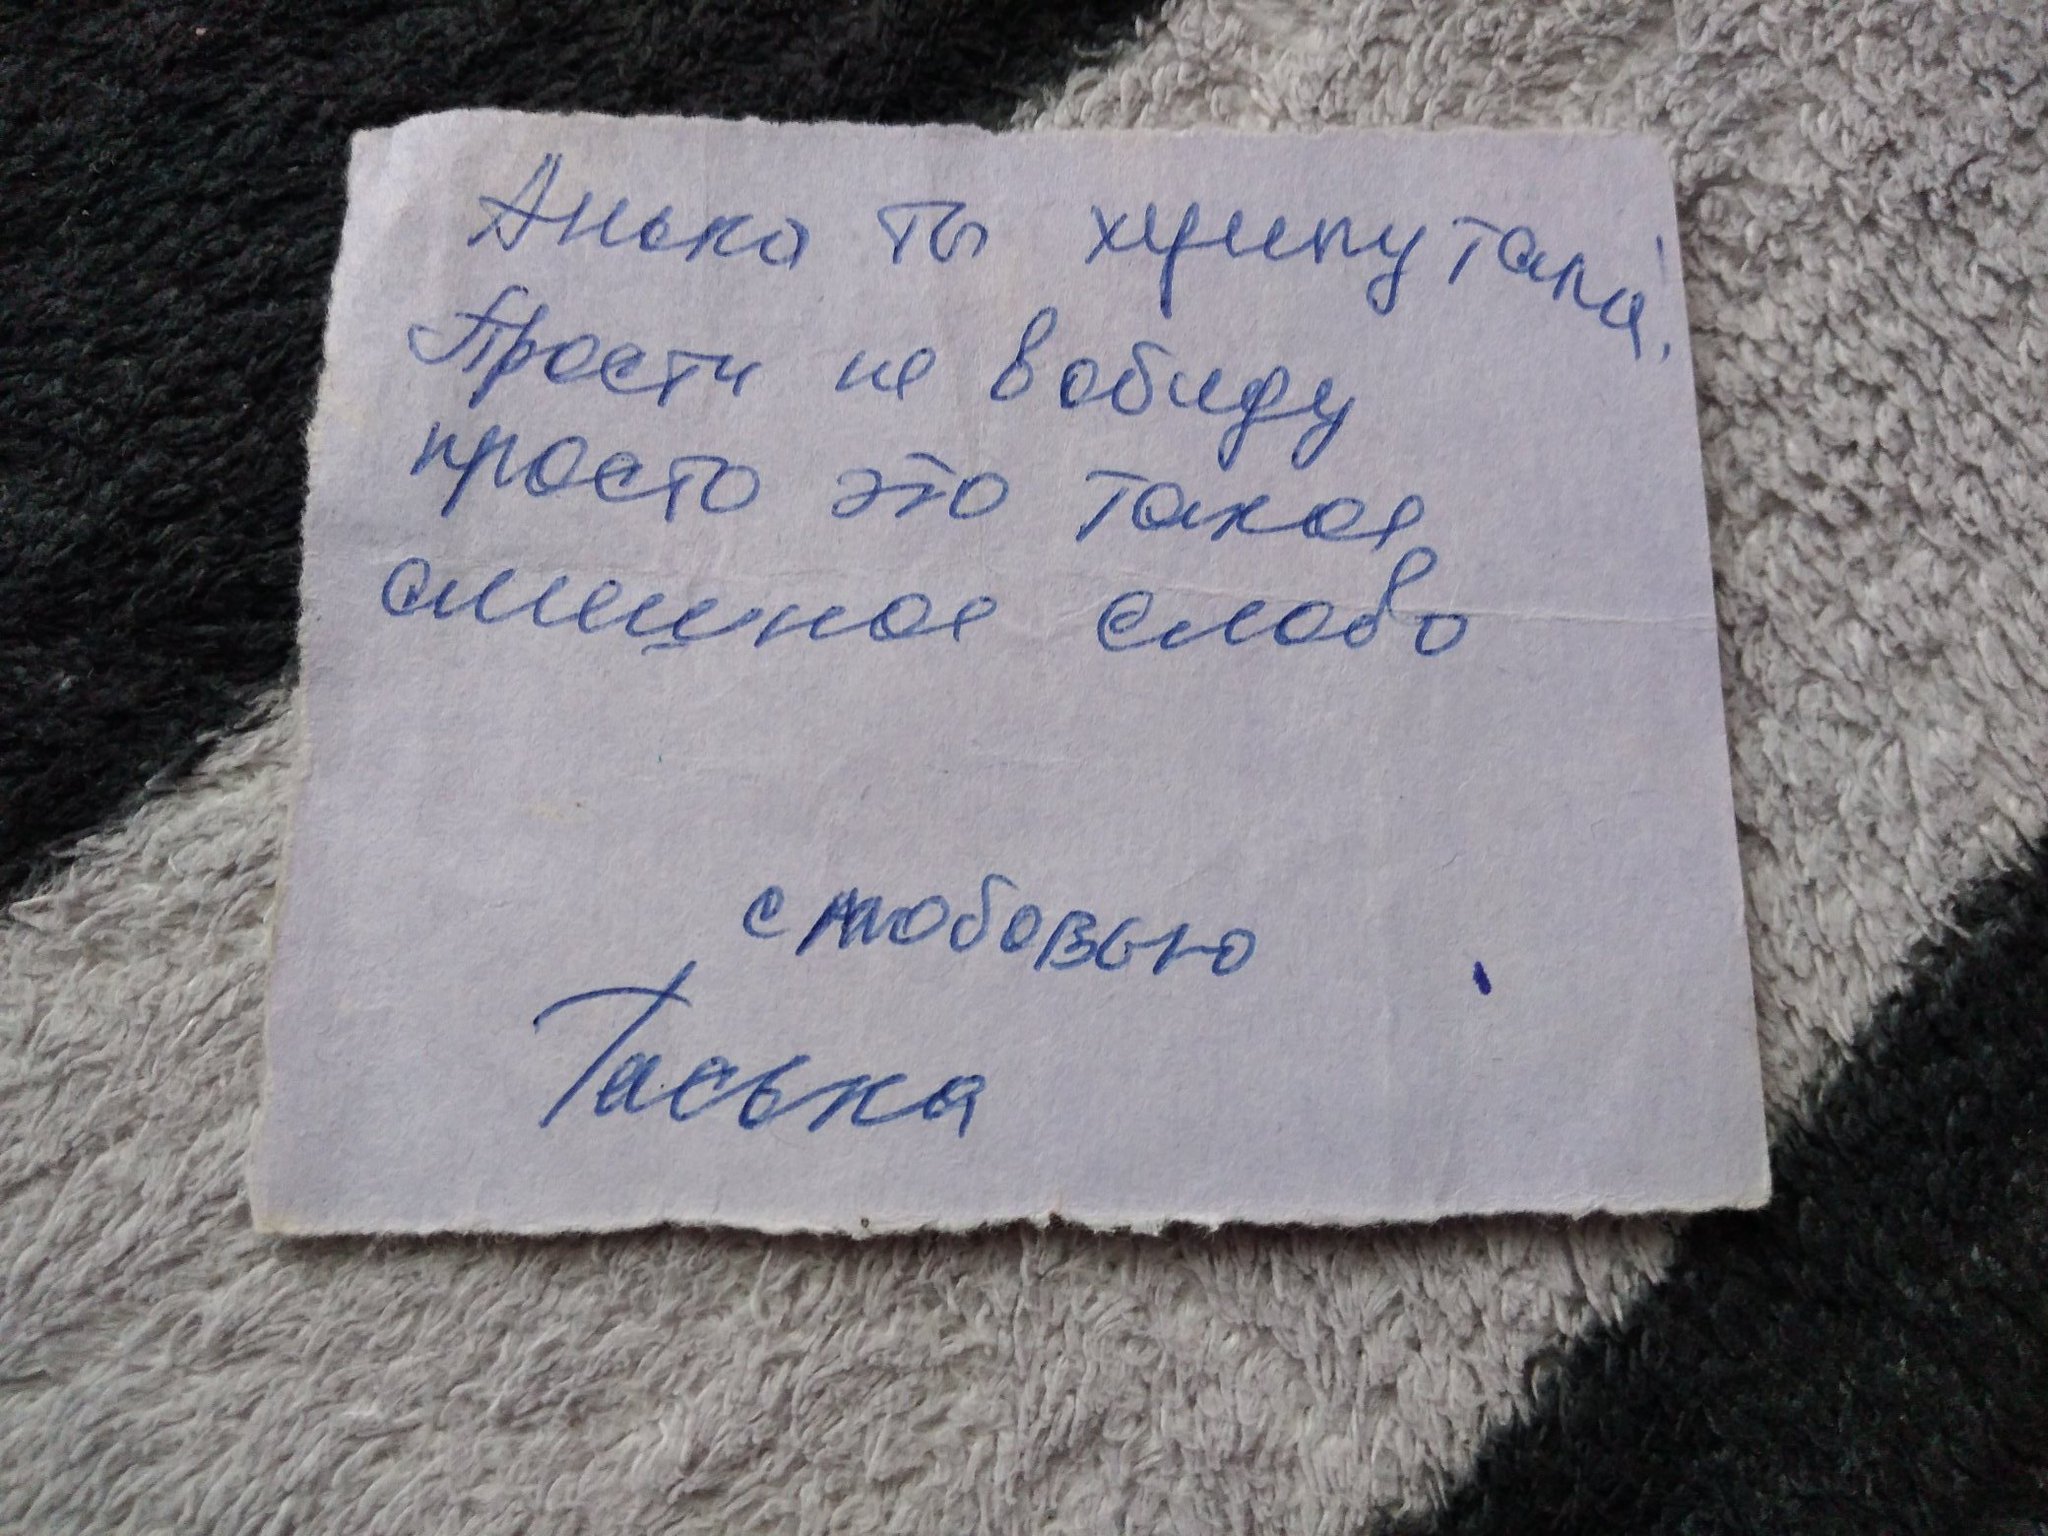 Анька ты хунпутала!
Прости не в обиду
просто это такое
смешное слово
с любовью
Таська